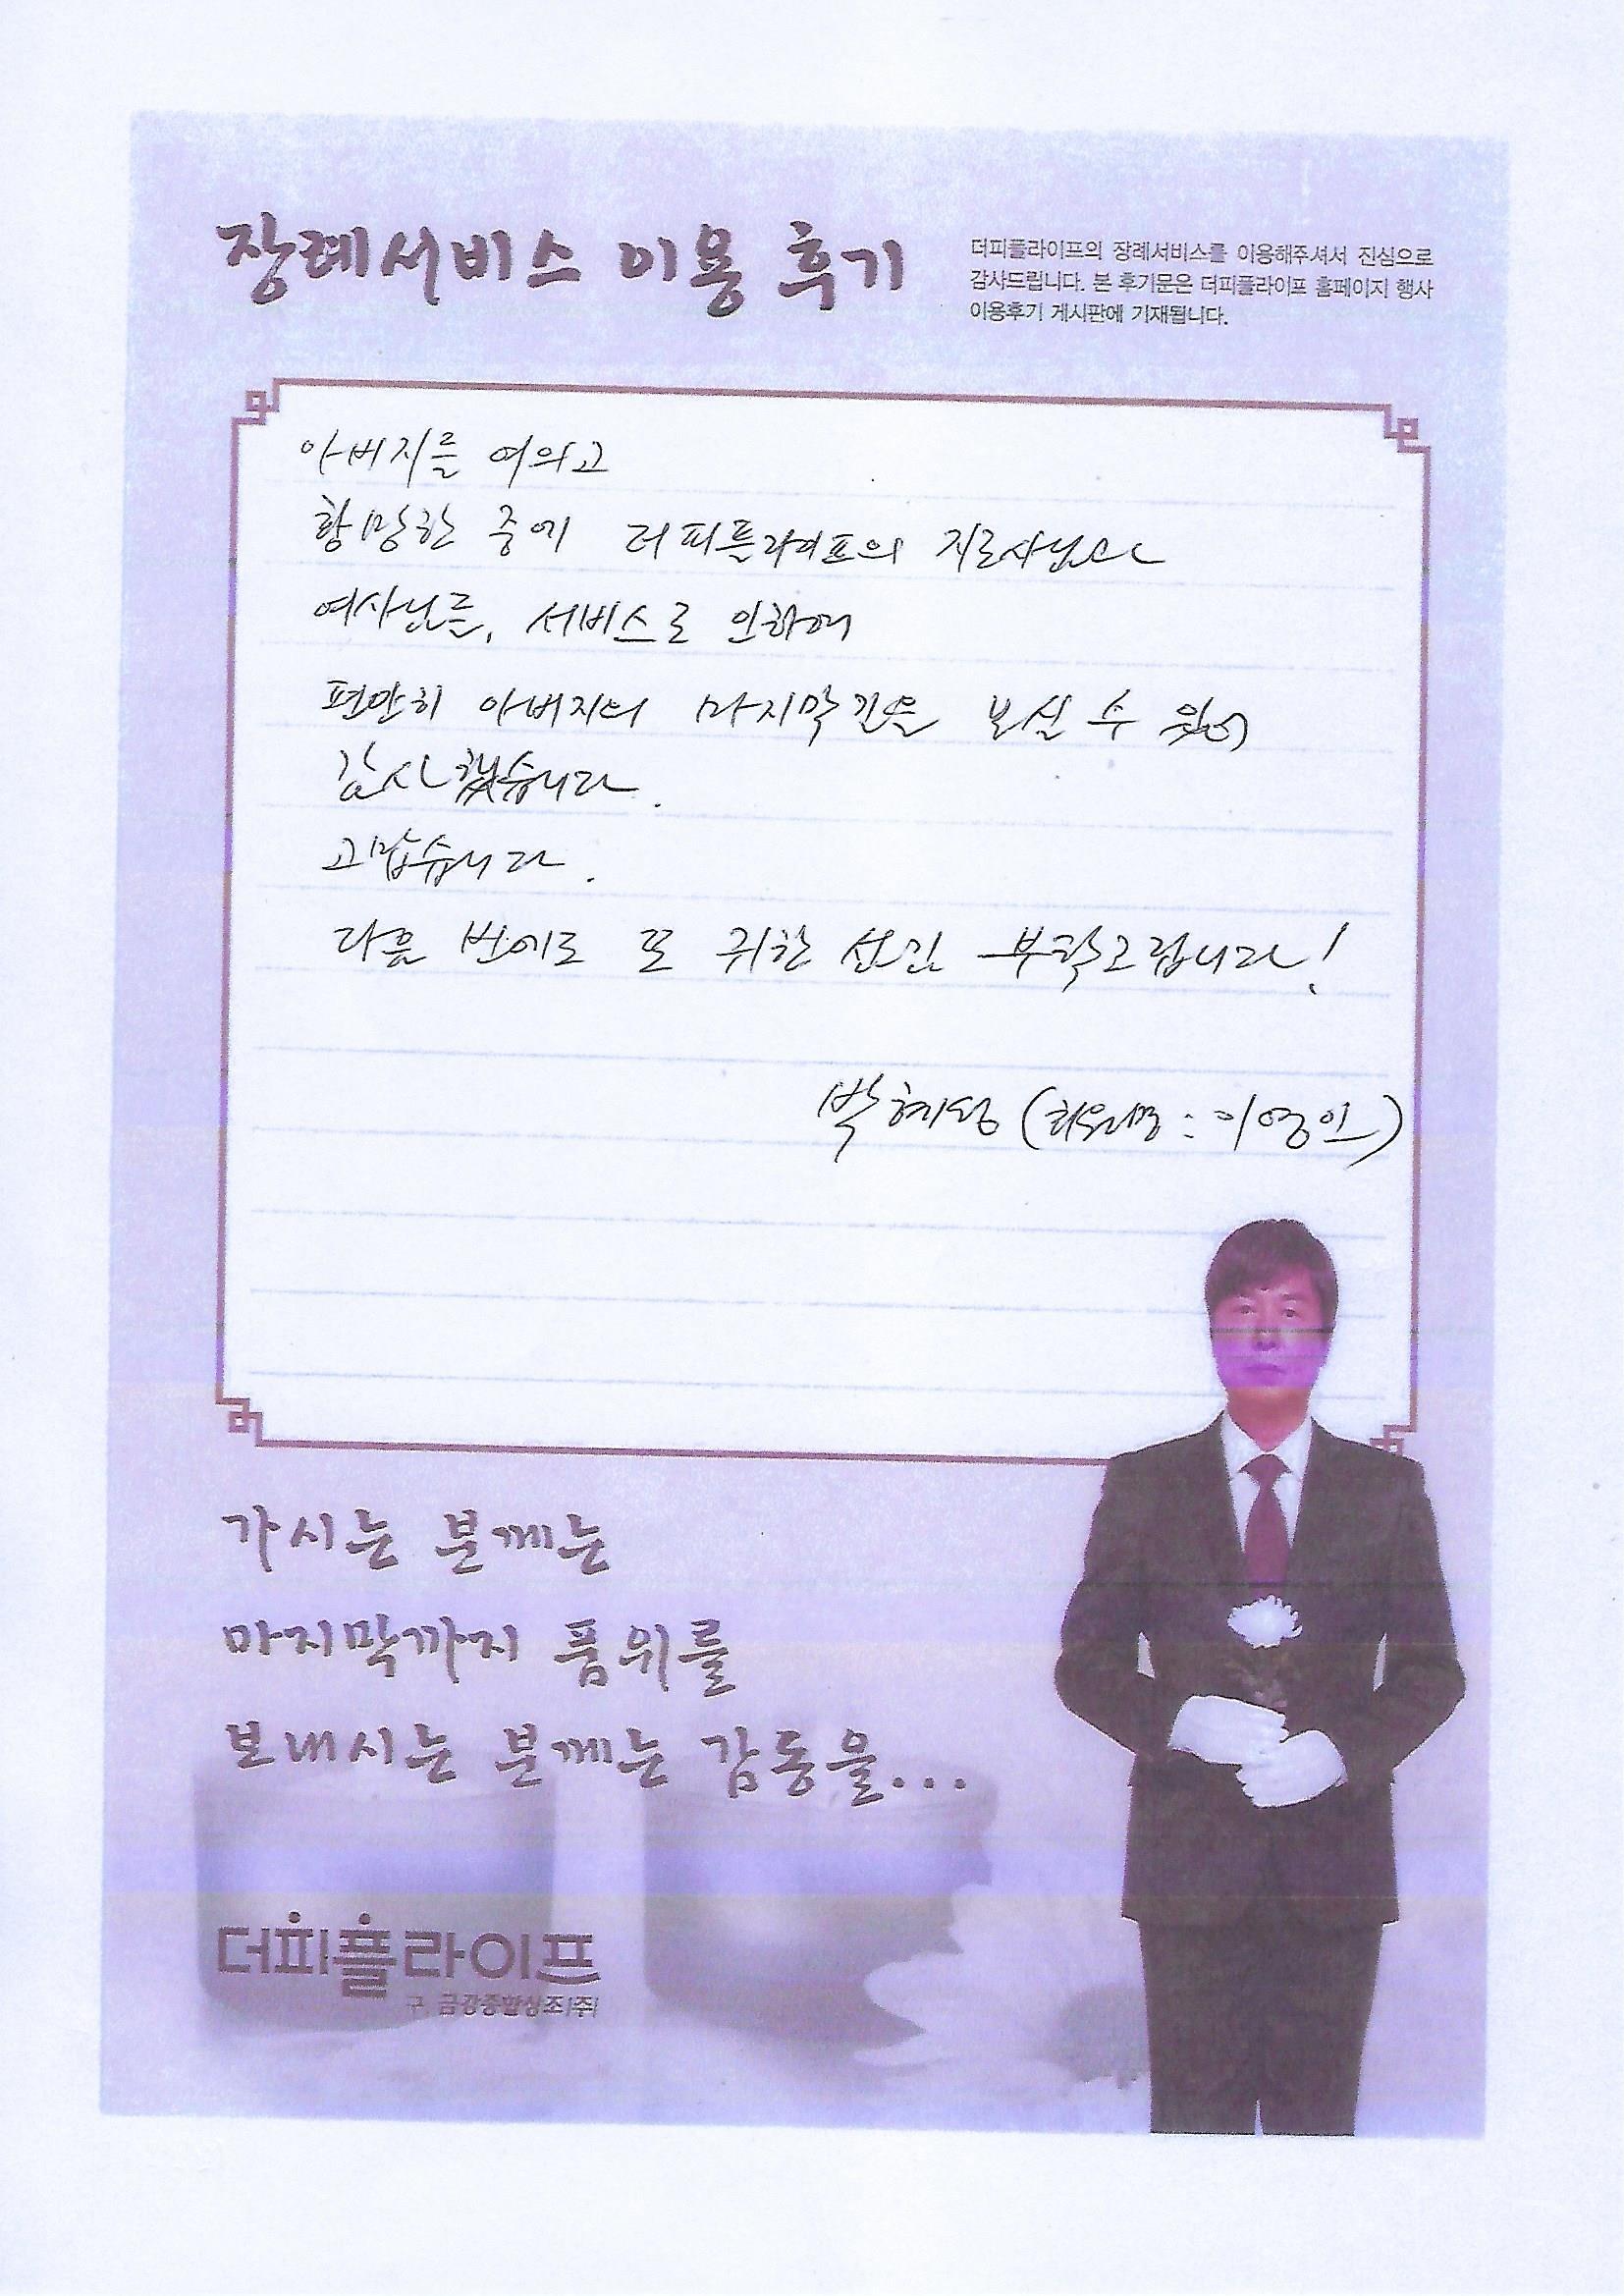 장례서비스 이용 후기
더피플라이프의 장례서비스를 이용해주셔서 진심으로
감사드립니다. 본 후기문은 더피플라이프 홈페이지 행사
이용후기 게시판에 기재됩니다.
아버지를 여의고
황망한 중에 더피플라이프의 지도사님과
여사님들, 서비스로 인하여
편안히 아버지의 마지막길을 보실 수 있어
감사했습니다.
고맙습니다.
다음 번에도 또 귀한 섬김 부탁드립니다!
(회원명 : 이영인)
가시는 분께는
마지막까지 품위를
보내시는 분께는 감동을...
더피플라이프
구 금강종합상조(주)